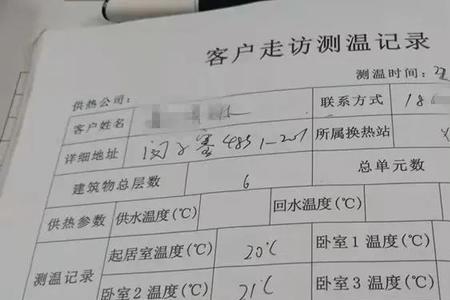 客户走访测温记录
测温时间:
供热公司:
客户姓名 联系方式 18
详细地址 闵子骞48号1-201 所属换热站
建筑物总层数 6 总单元数
供热参数 供水温度(℃) 回水温度(℃)
测温记录 起居室温度(℃) 20℃ 卧室1温度(℃)
卧室2温度(℃) 21℃ 卧室3温度(℃)